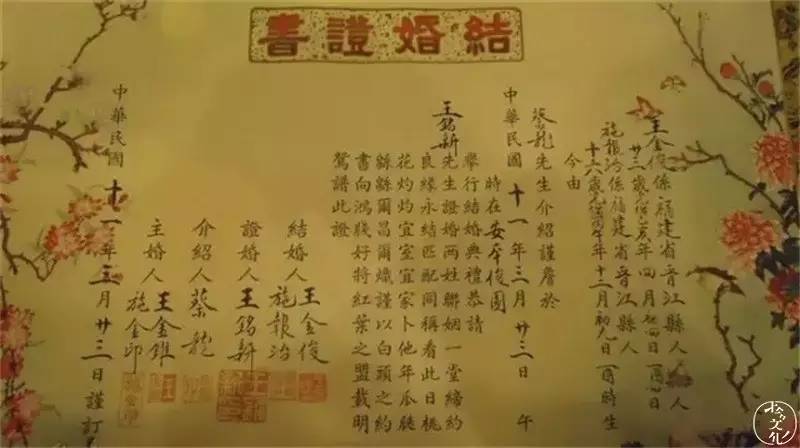 結婚證書
王金俊係福建省晉江縣人
廿三歲 年四月 日 時生
施報治係福建省晉江縣人
十六歲 年十二月初九日 時生
今由
蔡龍先生介紹謹詹於
中華民國十一年三月廿三日午
時在安平俊園
舉行結婚典禮恭請
王銘新先生證婚两姓聯姻一堂締約
良緣永结匹配同稱看此日桃
花灼灼宜室宜家卜他年瓜瓞
緜緜爾昌爾熾謹以白頭之約
書向鴻牋好將紅葉之盟載明
鴛譜此證
結婚人王金俊
施報治
證婚人王銘新
介紹人蔡龍
主婚人王金錐
施金印
中華民國十一年三月廿三日謹訂